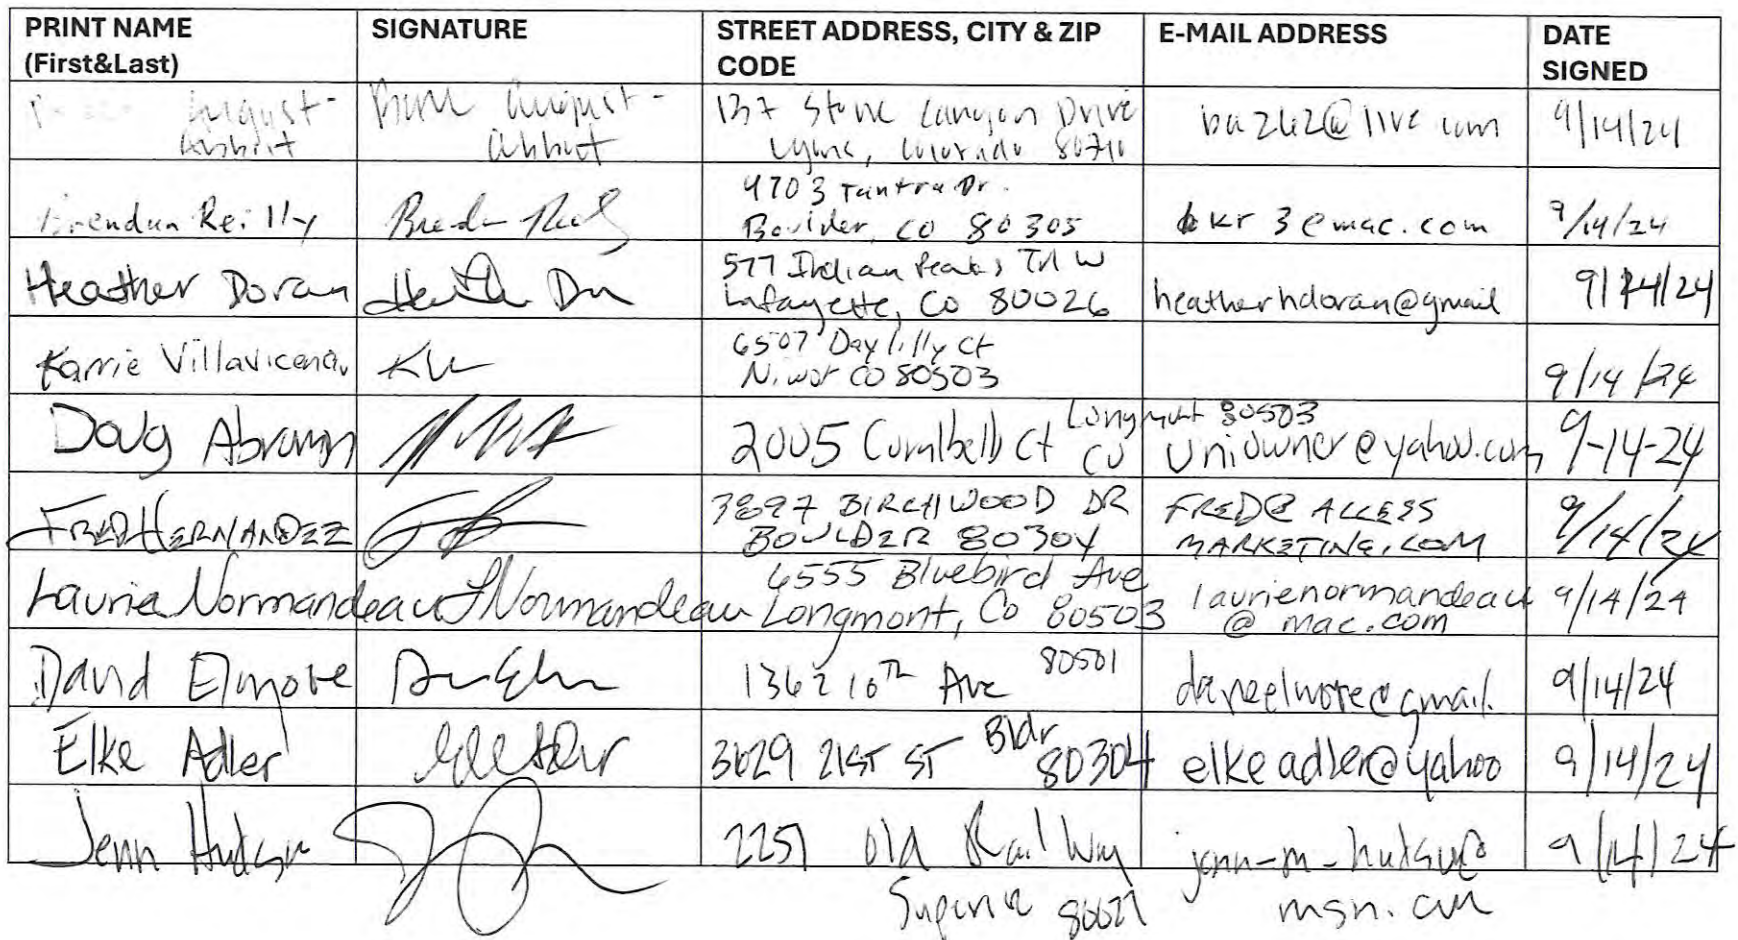 PRINT NAME
(First&Last)
SIGNATURE
STREET ADDRESS, CITY & ZIP
CODE
E-MAIL ADDRESS
DATE
SIGNED
August-
August-
137 Stone Canyon Drive
Lyons, Colorado
@live.com
9/14/24
Brendan Reilly
4703 Tantra Dr.
Boulder, CO 80305
bkr3@mac.com
9/14/24
Heather Doran
577 Indian Peaks Trl W
Lafayette, Co 80026
heatherhdoran@gmail
9/14/24
Karrie
6507 Daylilly Ct
Niwot CO 80503
9/14/24
Doug
2005 Ct
Longmont 80503
CO
uniowner@yahoo.com
9-14-24
FRED HERNANDEZ
3897 BIRCHWOOD DR
BOULDER 80304
FRED@ ACCESS
MARKETING.COM
9/14/24
Laurie Normandeau
LNormandeau
6555 Bluebird Ave
Longmont, Co 80503
laurienormandeau
@ mac.com
9/14/24
David Elmore
1362 10th Ave 80501
9/14/24
Elke Adler
3629 21ST ST Bldr
80304
elkeadler@yahoo
9/14/24
Jenn
2251 Old Rail Way
Superior 80027
msn.com
9/14/24